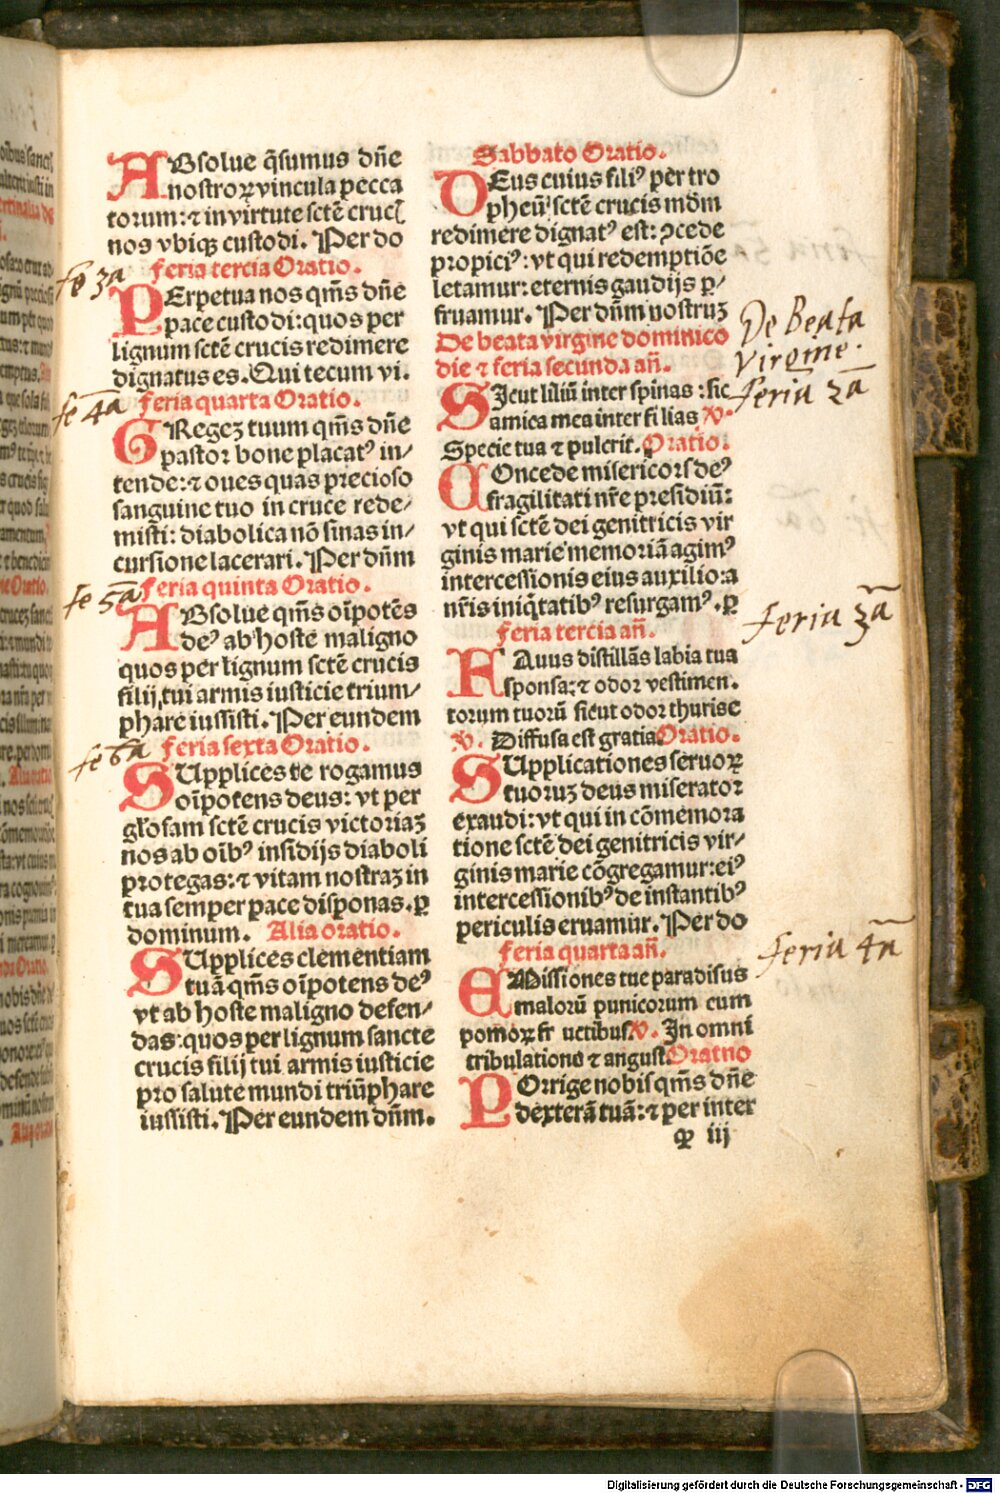 ABsolue q̄sumus dn̄e
nostroꝝ vincula pecca
torum: ⁊ in virtute sctē cruc̄
nos vbiqꝫ custodi. Per do
feria tercia Oratio.
fe 3a
PErpetua nos qm̄s dn̄e
pace custodi: quos per
lignum sctē crucis redimere
dignatus es. Qui tecum vi.
feria quarta Oratio.
fe 4a
GRegeꝫ tuum qm̄s dn̄e
pastor bone placatꝰ in/
tende: ⁊ oues quas precioso
sanguine tuo in cruce rede/
misti: diabolica nō sinas in/
cursione lacerari. Per dn̄m
feria quinta Oratio.
fe 5a
ABsolue qm̄s oīpotēs
deꝰ ab hoste maligno
quos per lignum sctē crucis
filij tui armis iusticie trium/
phare iussisti. Per eundem
feria sexta Oratio.
fe 6a
SUpplices te rogamus
oīpotens deus: vt per
gl̄osam sctē crucis victoriaꝫ
nos ab oībꝰ insidijs diaboli
protegas: ⁊ vitam nostraꝫ in
tua semper pace disponas. ꝑ
dominum. Alia oratio.
SUpplices clementiam
tuā qm̄s oīpotens deꝰ
vt ab hoste maligno defen/
das: quos per lignum sancte
crucis filij tui armis iusticie
pro salute mundi triūphare
iussisti. Per eundem dn̄m.
Sabbato Oratio.
DEus cuius filiꝰ per tro
pheū sctē crucis mūdm
redimere dignatꝰ est: ꝯcede
propiciꝰ: vt qui redemptiōe
letamur: eternis gaudijs ꝑ/
fruamur. Per dn̄m nostruꝫ
De beata virgine dominico
die ⁊ feria secunda añ.
De Beata
Virgine.
Feria 2a
SIcut liliū inter spinas: sic
amica mea inter filias ꝟ.
Specie tua ⁊ pulcrit. Oratio.
COncede misericors deꝰ
fragilitati nr̄e presidiū:
vt qui sctē dei genitricis vir
ginis marie memoriā agimꝰ
intercessionis eius auxilio: a
nr̄is iniq̄tatibꝰ resurgamꝰ. ꝑ
feria tercia añ.
Feria 3a
FAuus distillās labia tua
sponsa: ⁊ odor vestimen.
torum tuorū sicut odor thuris
ꝟ. Diffusa est gratia. Oratio.
SUpplicationes seruoꝝ
tuoruꝫ deus miserator
exaudi: vt qui in cōmemora
tione sctē dei genitricis vir/
ginis marie cōgregamur: eiꝰ
intercessionibꝰ de instantibꝰ
periculis eruamur. Per do
feria quarta añ.
Feria 4a
EMissiones tue paradisus
malorū punicorum cum
pomoꝝ fr uctibus ꝟ. In omni
tribulatione ⁊ angust Oratno
POrrige nobis qm̄s dn̄e
dexterā tuā: ⁊ per inter
iij
Digitalisierung gefördert durch die Deutsche Forschungsgemeinschaft - DFG